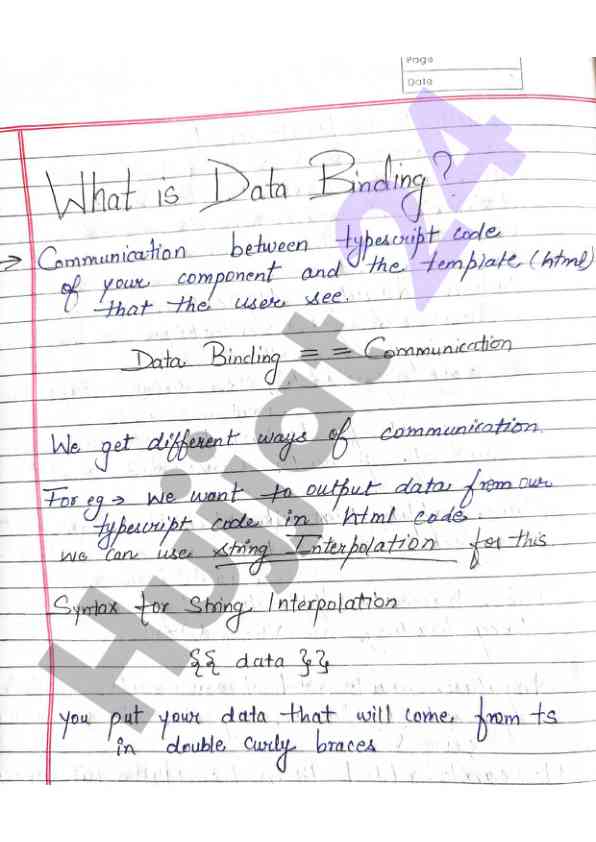 Page
Date
What is Data Binding?
→ Communication between typescript code
of your component and the template (html)
that the user see.
Data Binding = = Communication
We get different ways of communication.
For eg → We want to output data from our
typescript code in html code.
we can use string Interpolation for this
Syntax for String Interpolation
{{ data }}
you put your data that will come from ts
in double curly braces
Hujjat 24